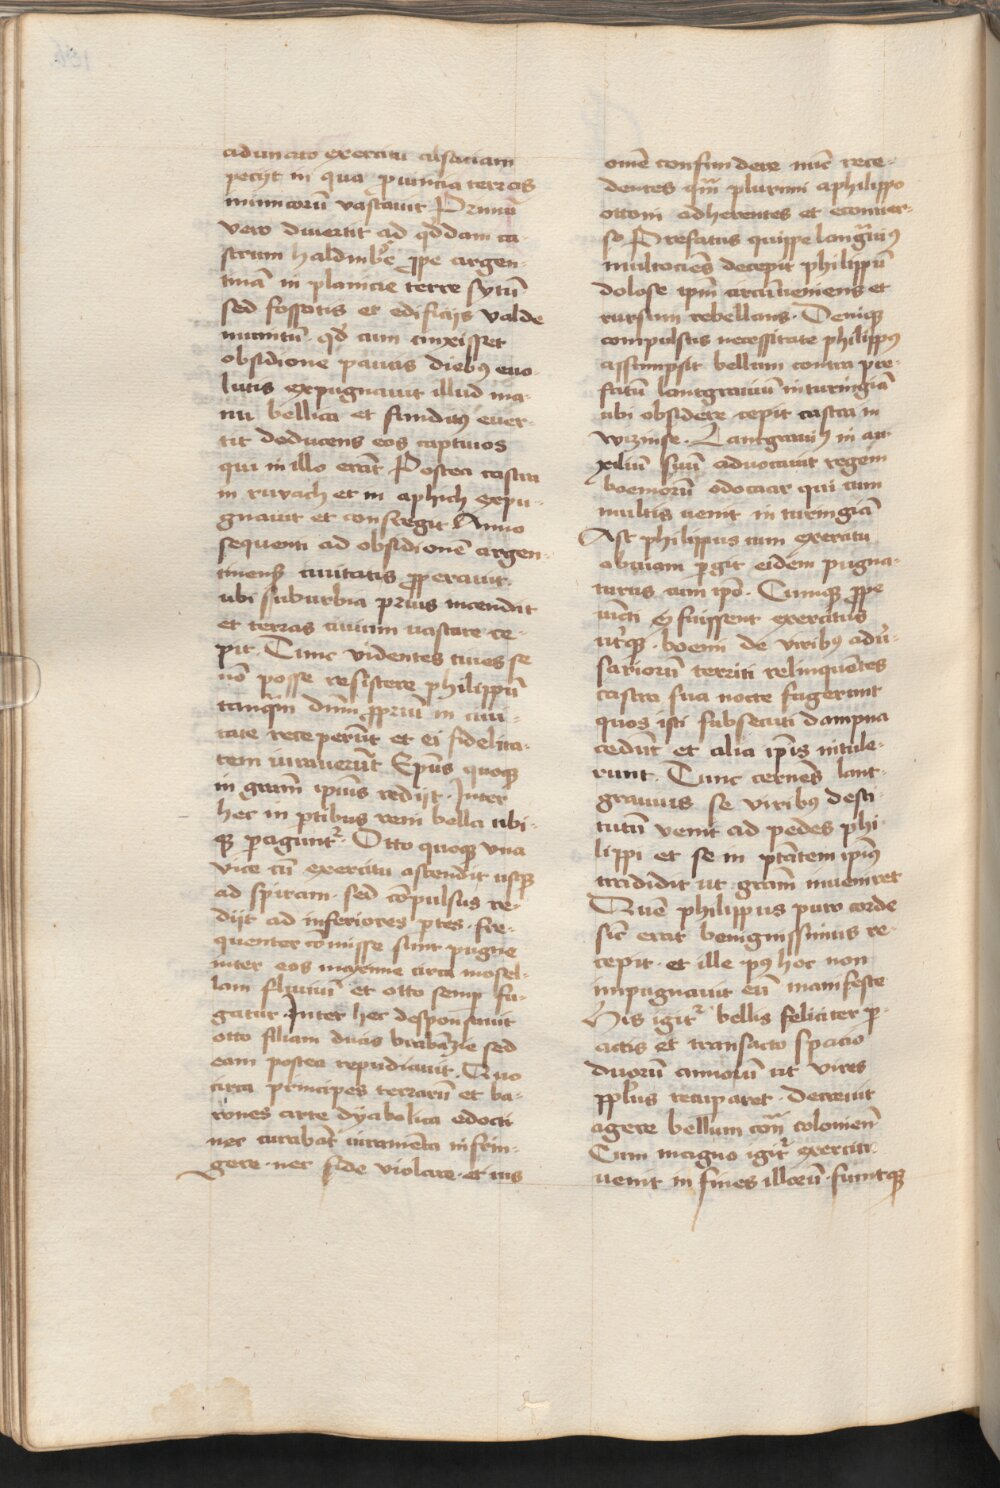 adunato exercitu alsaciam
peciit in qua prouincia terras
inimicorū vastauit Primū
vero diuertit ad qddam ca-
strum haldinbᵉc ꝓpe argen-
tinā in planicie terre sytū
sed fossatis et edificijs valde
munitū. qd cum cinxisset
obsidione paucis diebꝰ euo-
lutis expugnauit illud ma-
nu bellica et funditꝰ euer-
tit deducens eos captiuos
qui in illo erāt Postea castra
in ruvach et in aphich expu-
gnauit et confregit Anno
sequenti ad obsidionē argen-
tinenß ciuitatis ꝓperauit.
ubi suburbia prius incendit
et terras ciuium uastare ce-
pit. Tunc videntes ciues se
nō posse resistere philippū
tanqm̄ dnm̄ ꝓpriū in ciui-
tate receperūt et ei fidelita-
tem iurauerūt Epūs quoqꝫ
in gram̄ ipiūs redijt. Inter
hec in ptibus reni bella ubi-
qꝫ paguntᷣ. Otto quoqꝫ vna
vice cū exercitu ascendit usqꝫ
ad spiram. sed cōpulsus re-
dijt ad inferiores ptes. fre-
quenter cōmisse sunt pugne
inter eos maxime circa mosel-
lam fluuiū et otto semp fu-
gatur Inter hec desponsauit
otto filiam ducis brabāzie sed
eam postea repudiauit. Quo
circa principes terrarū et ba-
rones arte dyabolica edocti
nec curabāt iuramēta infrin-
gere. nec fide violare. et ius
omē confundere nūc rece-
dentes qm̄ plurimi a philippo
ottoni adherentes et econuer-
so Prefatus quippe langrauiꝰ
multociēs decepit philippū
dolose ipm̄ circūueniens et
rursum rebellans. Deniqꝫ
compulsus necessitate philippꝰ
assumpsit bellum contra pre-
fatū lantgrauiū in turingiā
ubi obsidere cepit castra in
wizinse. Lantgrauiꝰ in au-
xiliū suū aduocauit regem
boemorū odocacar qui cum
multis uenit in turingiā
Ast philippus cum exercitu
obuiam pgit eidem pugna-
turus cum ipō. Cumqꝫ ꝓpe
uicti fuissent exercitus
utᷣqꝫ. boemi de viribꝰ adū-
sariorū territi relinquētes
castra sua nocte fugerunt
quos isti subsecuti dampna
cedūt et alia ipīs intule-
runt. Tunc cernēs lant-
grauius se viribꝰ desti-
tutū venit ad pedes phi-
lippi et se in ptātem ipiꝰ
tradidit ut gram̄ inueniret
Quē philippus puro corde
sic erat benignissimus re-
cepit. et ille pꝰ hoc non
impugnauit eū manifeste
His igitᷣ bellis feliciter p-
actis et transacto spacio
duorū annorū ut vires
ppl̄us recuparet. decreuit
agere bellum cont̄ colonien̄
Cum magno igitᷣ exercitu
uenit in fines illorū. fuitqꝫ